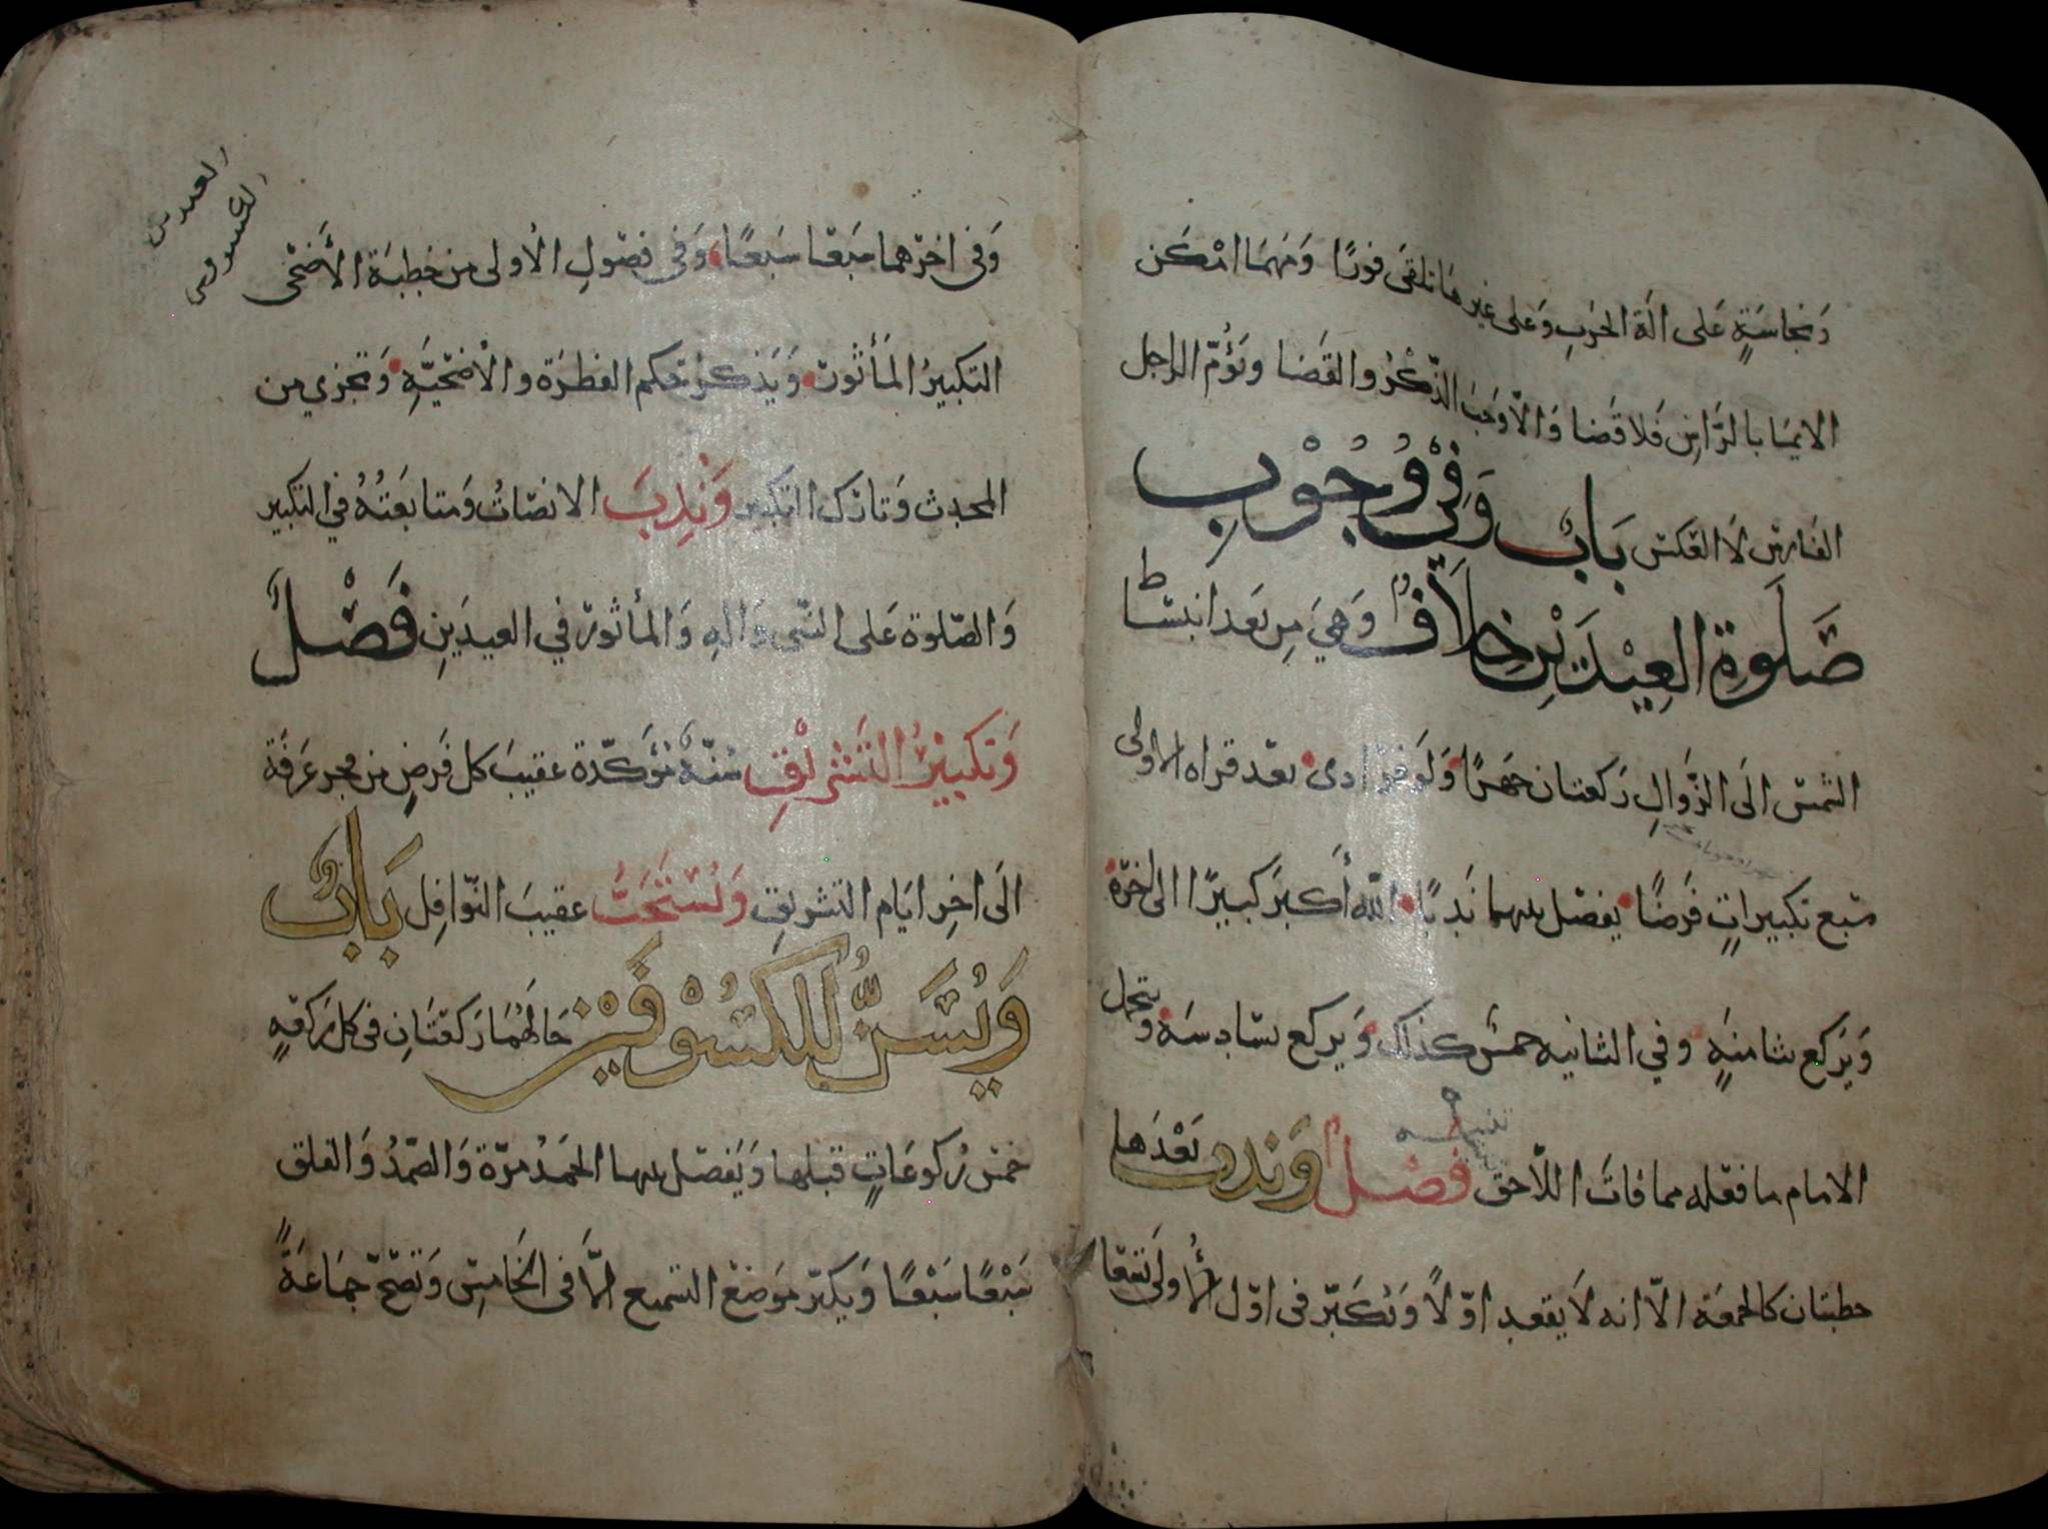 وَنجاسَةٍ عَلى الَة الحَربِ وَعلى غيرهَا تلقى فورًا وَمَهمَا امْكَن
الايمَا بالرَّاسِ فَلا قَضا وَالّا وَجَبَ الذّكْرُ والقَضَا وَيَؤُمّ الراجل
الفَارسَ لَا العَكس بَابٌ وَفِيْ وُجُوْبِ
صَلَوةِ العِيْدَيْنِ خِلَافٌ وَهيَ مِن بَعَد انبسَاط
الشمسِ الَى الزَّوَالِ رَكعتان جَهرًا وَلَو فرَادى بعَد قراه الاولى
سَبع تكبيراتٍ فَرَضًا يفصَل بينهما نَدبًا اللّه أكبَر كبيرًا الى اخرّه
وَيَركع بثامنَةٍ وفي الثانيه خمسٌ كذلك وَيركع بسَادسَة وَيتحمل
الامام ما فعَله مما فاتَ اللّاحق فَصْلٌ وَندب بَعْدَها
خطبتان كالجمعَة الّا انه لَا يقعد اوّلًا وَيُكَبّر في اوّل الأولَى تسعًا
العيدين
الكسوفين
وَفي اخِرّهما سَبعًا سَبعًا وَفي فصُولِ الأولى من خطبَة الأضحَى
التكبيرُ المَأثُور وَيَذكر حُكم الفطرَة والأضحيَّةِ وَتجزي من
المحدث وَتارك التكبير وَنُدِبَ الانصَاتُ وَمتابَعَتُهُ في التكبير
وَالصَّلوة عَلى النّبي وَالهِ وَالمأثورُ في العيدَينِ فَصْلٌ
وَتكبيْرُ التَشْرِيْقِ سُنّةٌ مُؤكّدة عقيبَ كل فَرضٍ من فجر عَرَفَة
الَى اخِر ايّام التشريقِ وَيُسْتَحَبُّ عقيبَ النّوَافِل بَابٌ
وَيُسَنُّ لِلكُسُوْفَيْنِ حَالَهُمَا رَكعَتَانِ في كل رَكعَةٍ
خمسُ رُكوعَاتٍ قبلها وَيَفصَل بينها الحَمَدُ مرّة وَالصَّمَدُ وَالفلق
سَبْعًا سَبْعًا وَيكبّر مَوضعَ التسميع الَّا في الخَامِسِ وَتَصحّ جمَاعَةً